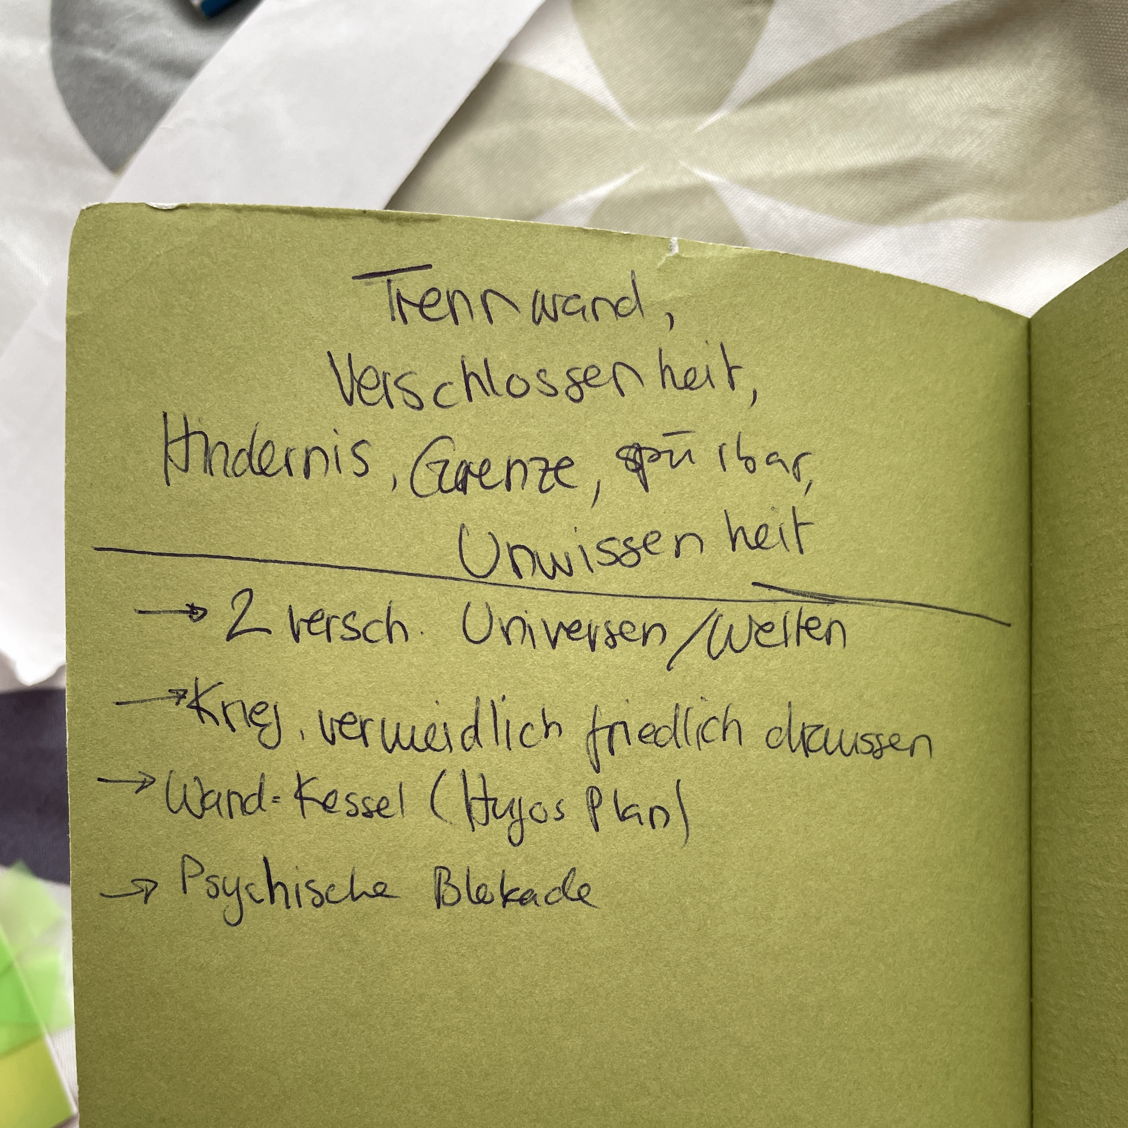 Trennwand,
Verschlossenheit,
Hindernis, Grenze, spürbar,
Unwissenheit
→ 2 versch. Universen/Welten
→ Krieg, vermeidlich friedlich draussen
→ Wand = Kessel (Hugos Plan)
→ Psychische Blokade